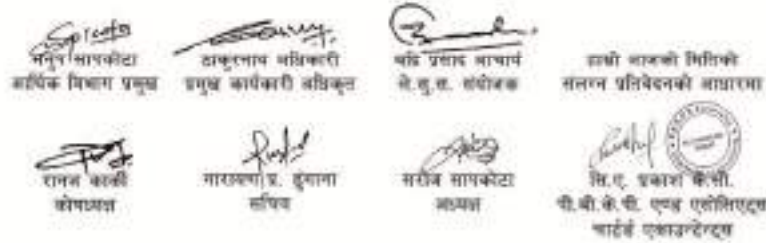 सापकोटा
आर्थिक विभाग प्रमुख
ठाकुरनाथ अधिकारी
प्रमुख कार्यकारी अधिकृत
प्रसाद आचार्य
ले.सु.स. संयोजक
हाम्रो आजको मितिको
संलग्न प्रतिवेदनको आधारमा
कार्की
कोषाध्यक्ष
नारायण प्र. ढुंगाना
सचिव
सरोज सापकोटा
अध्यक्ष
सि.ए. प्रकाश के.सी.
पी.बी.के.पी. एण्ड एसोसिएट्स
चार्टर्ड एकाउन्टेन्ट्स